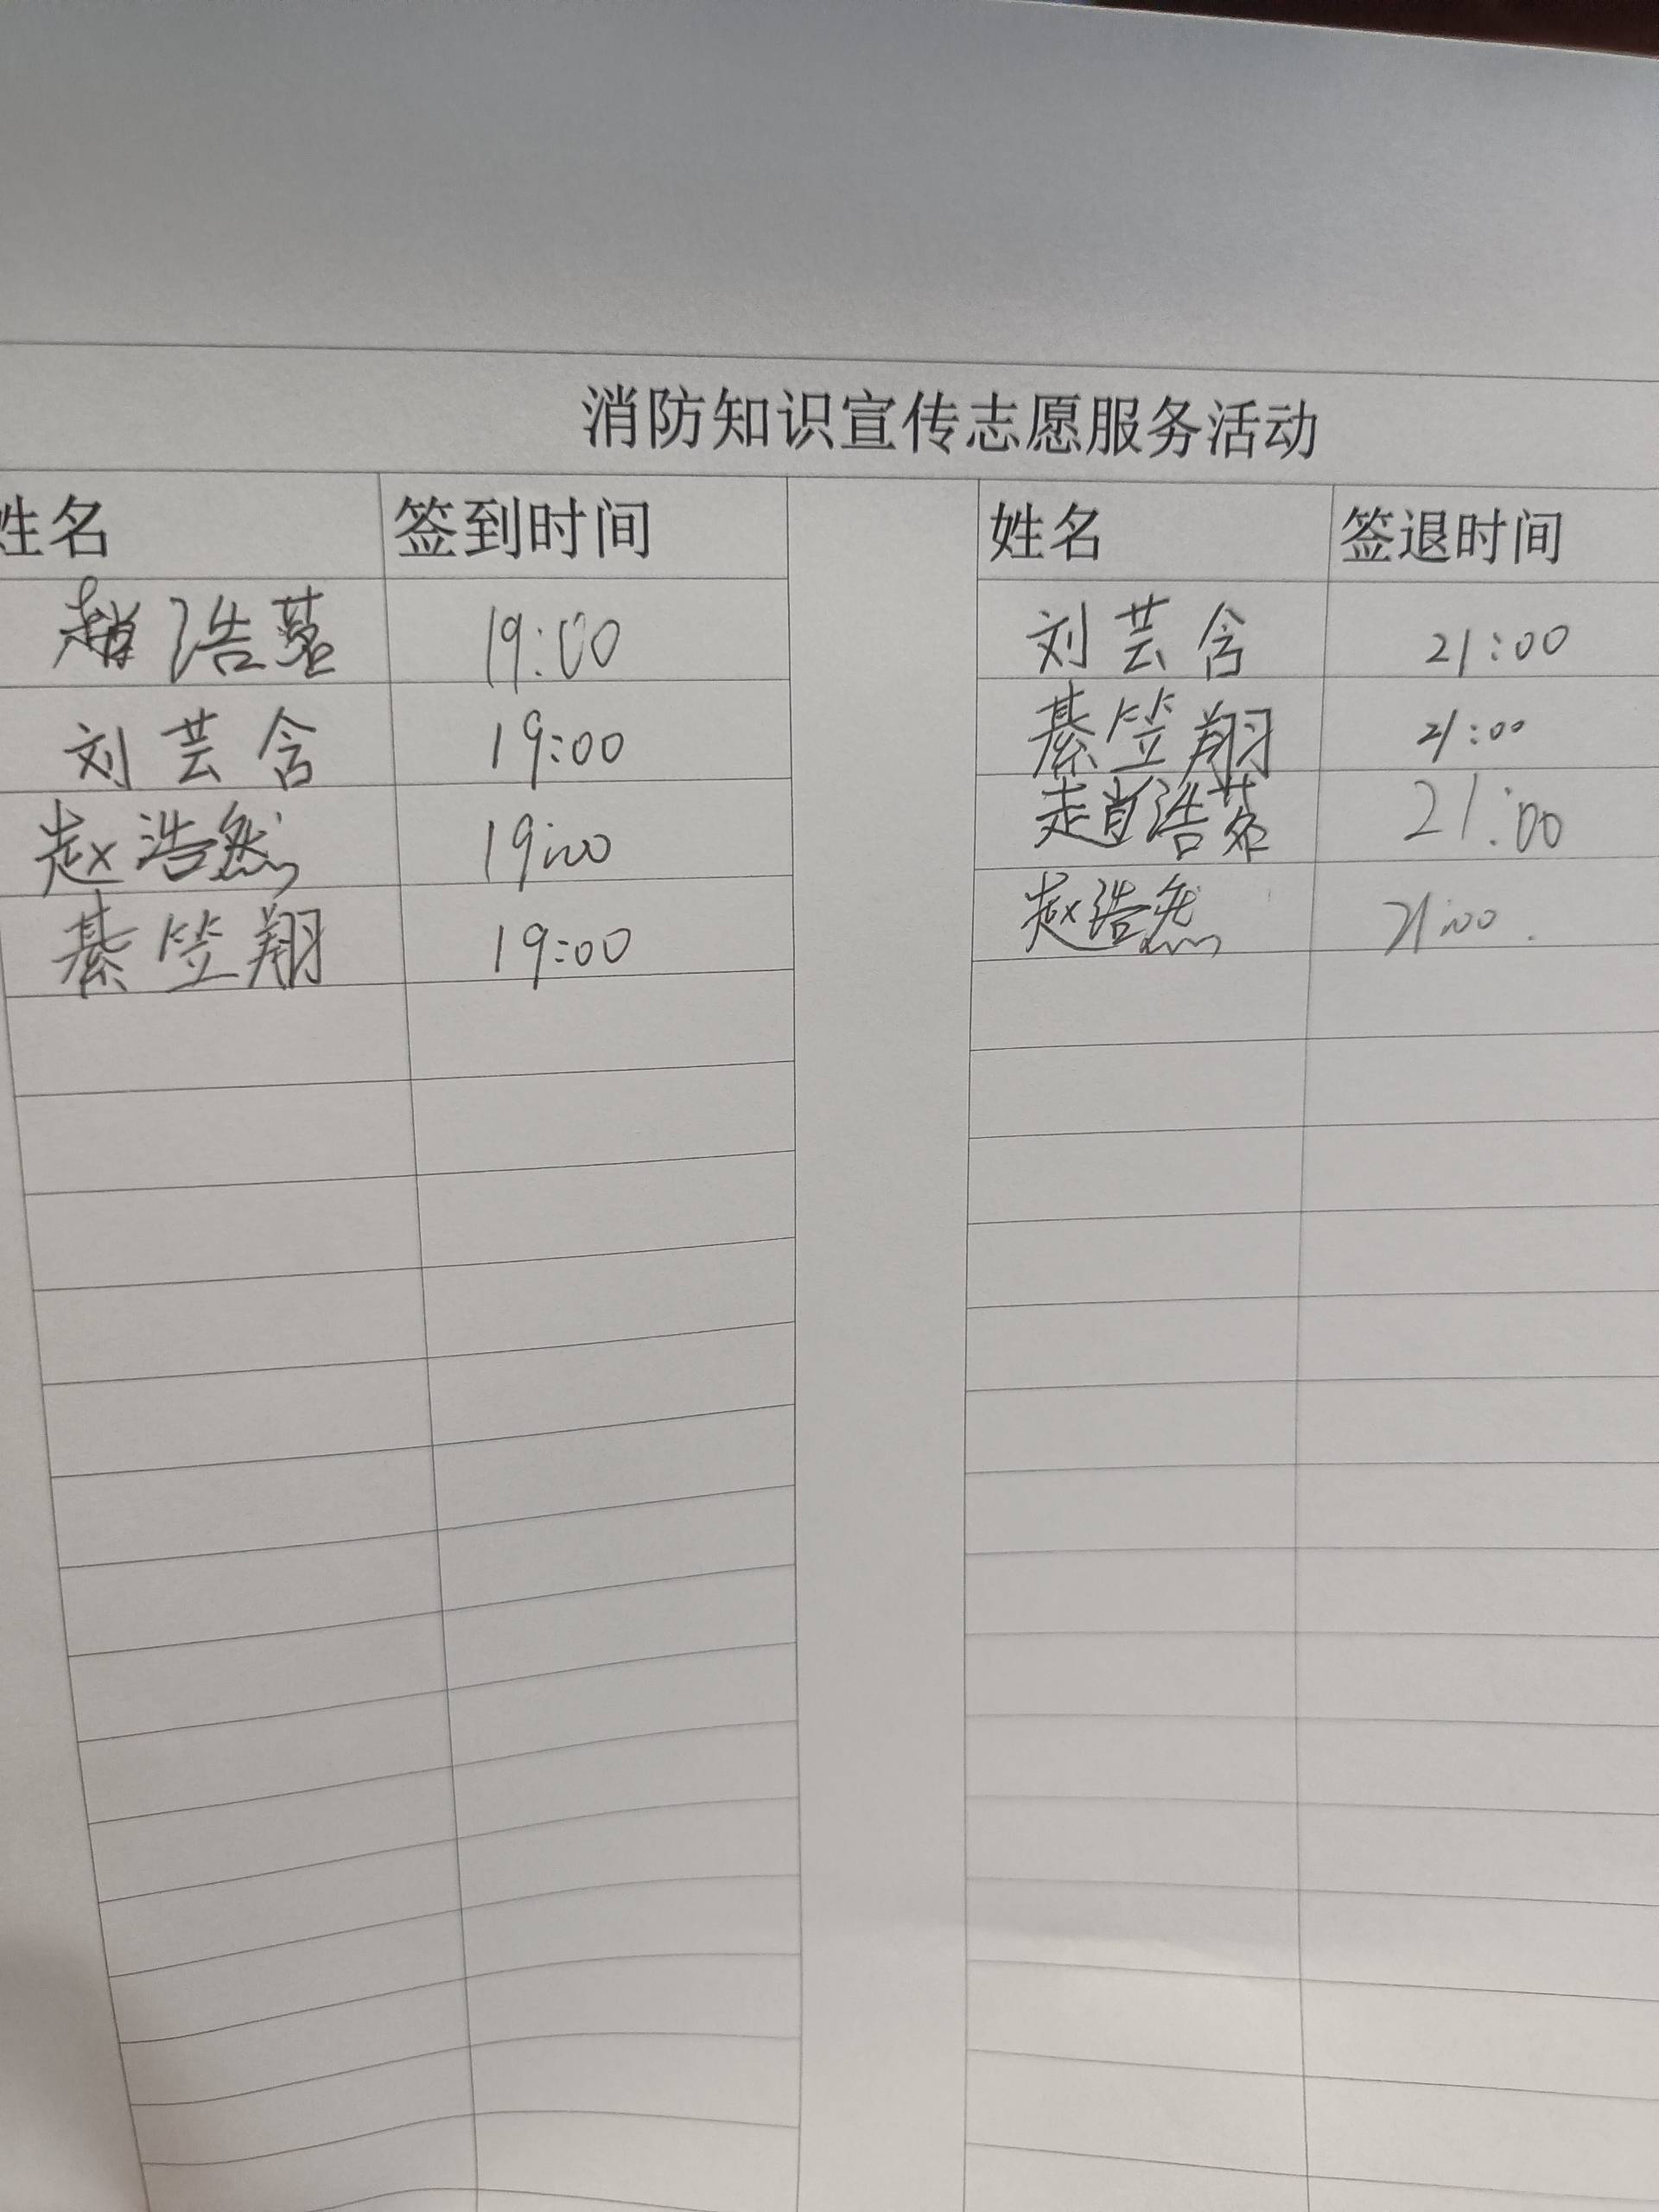 消防知识宣传志愿服务活动
姓名 签到时间 姓名 签退时间
趙浩 19:00 刘芸含 21:00
刘芸含 19:00 綦笠翔 21:00
赵浩然 19:00 趙浩 21:00
綦笠翔 19:00 赵浩然 21:00